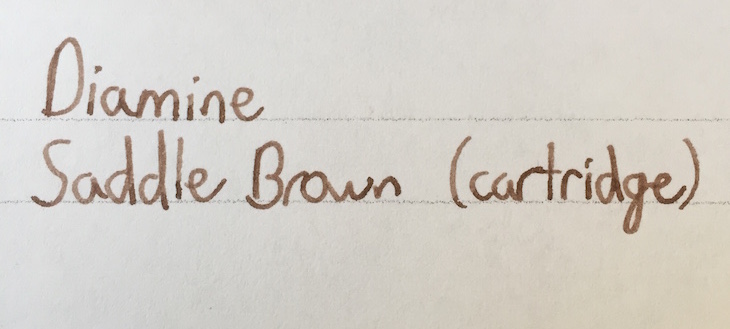 Diamine
Saddle Brown (cartridge)